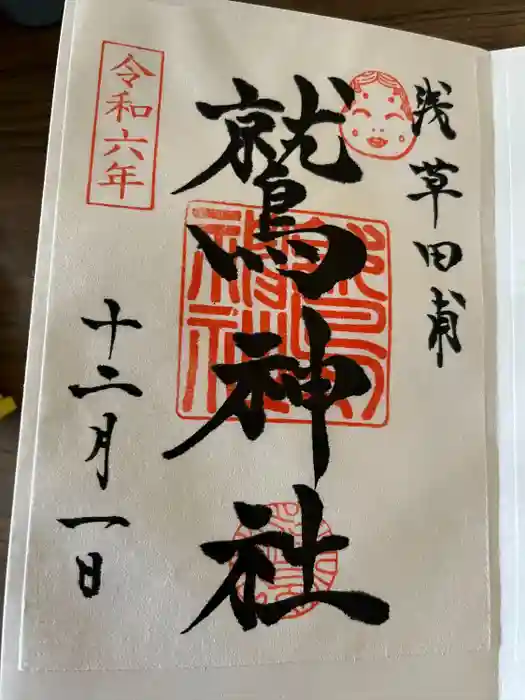 浅草田甫
鷲神社
令和六年
十二月一日
鷲神社